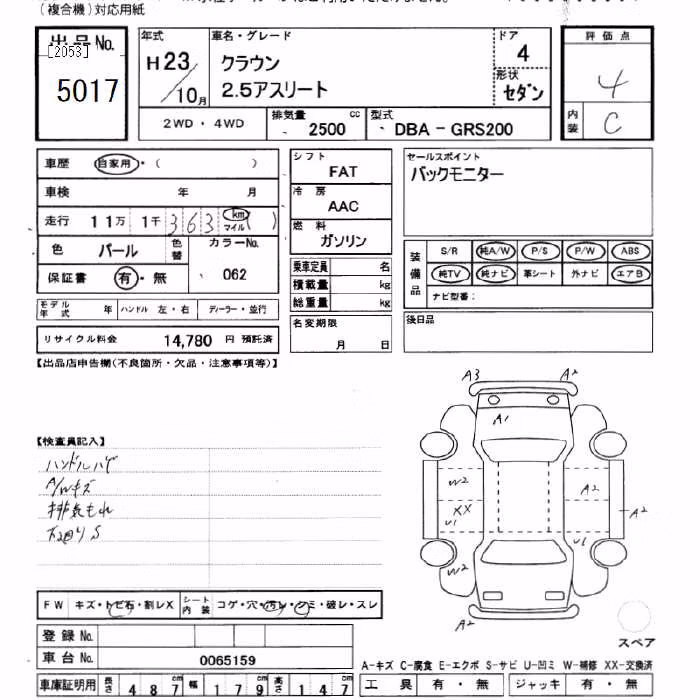 (複合機)対応用紙
出品No.
[2053]
5017
年式
H23/10月
車名・グレード
クラウン
2.5アスリート
ドア
4
形状
セダン
評価点
4
内装
C
2WD・4WD
排気量
2500
cc
型式
DBA - GRS200
車歴
自家用・( )
車検
年 月
走行
11万 1千 363 km マイル ( )
色
パール
色替
カラーNo.
062
保証書
有・無
モデル年式
年
ハンドル 左・右
ディーラー・並行
リサイクル料金
14,780 円 預託済
シフト
FAT
冷房
AAC
燃料
ガソリン
乗車定員 名
積載量 kg
総重量 kg
名変期限
月 日
セールスポイント
バックモニター
装備品
S/R
純A/W
P/S
P/W
ABS
純TV
純ナビ
革シート
外ナビ
エアB
ナビ型番:
後日品
【出品店申告欄(不良箇所・欠品・注意事項等)】
【検査員記入】
ハンドルハゲ
A/Wキズ
排気もれ
下廻りS
A3
A2
A1
W2
A2
XX
U1
A2
U1
W2
A2
スペア
FW
キズ・トビ石・割レX
シート内装
コゲ・穴・汚レ・シミ・破レ・スレ
登録No.
車台No.
0065159
車庫証明用
長さ 487cm
幅 179cm
高さ 147cm
A-キズ C-腐食 E-エクボ S-サビ U-凹ミ W-補修 XX-交換済
工具 有・無
ジャッキ 有・無